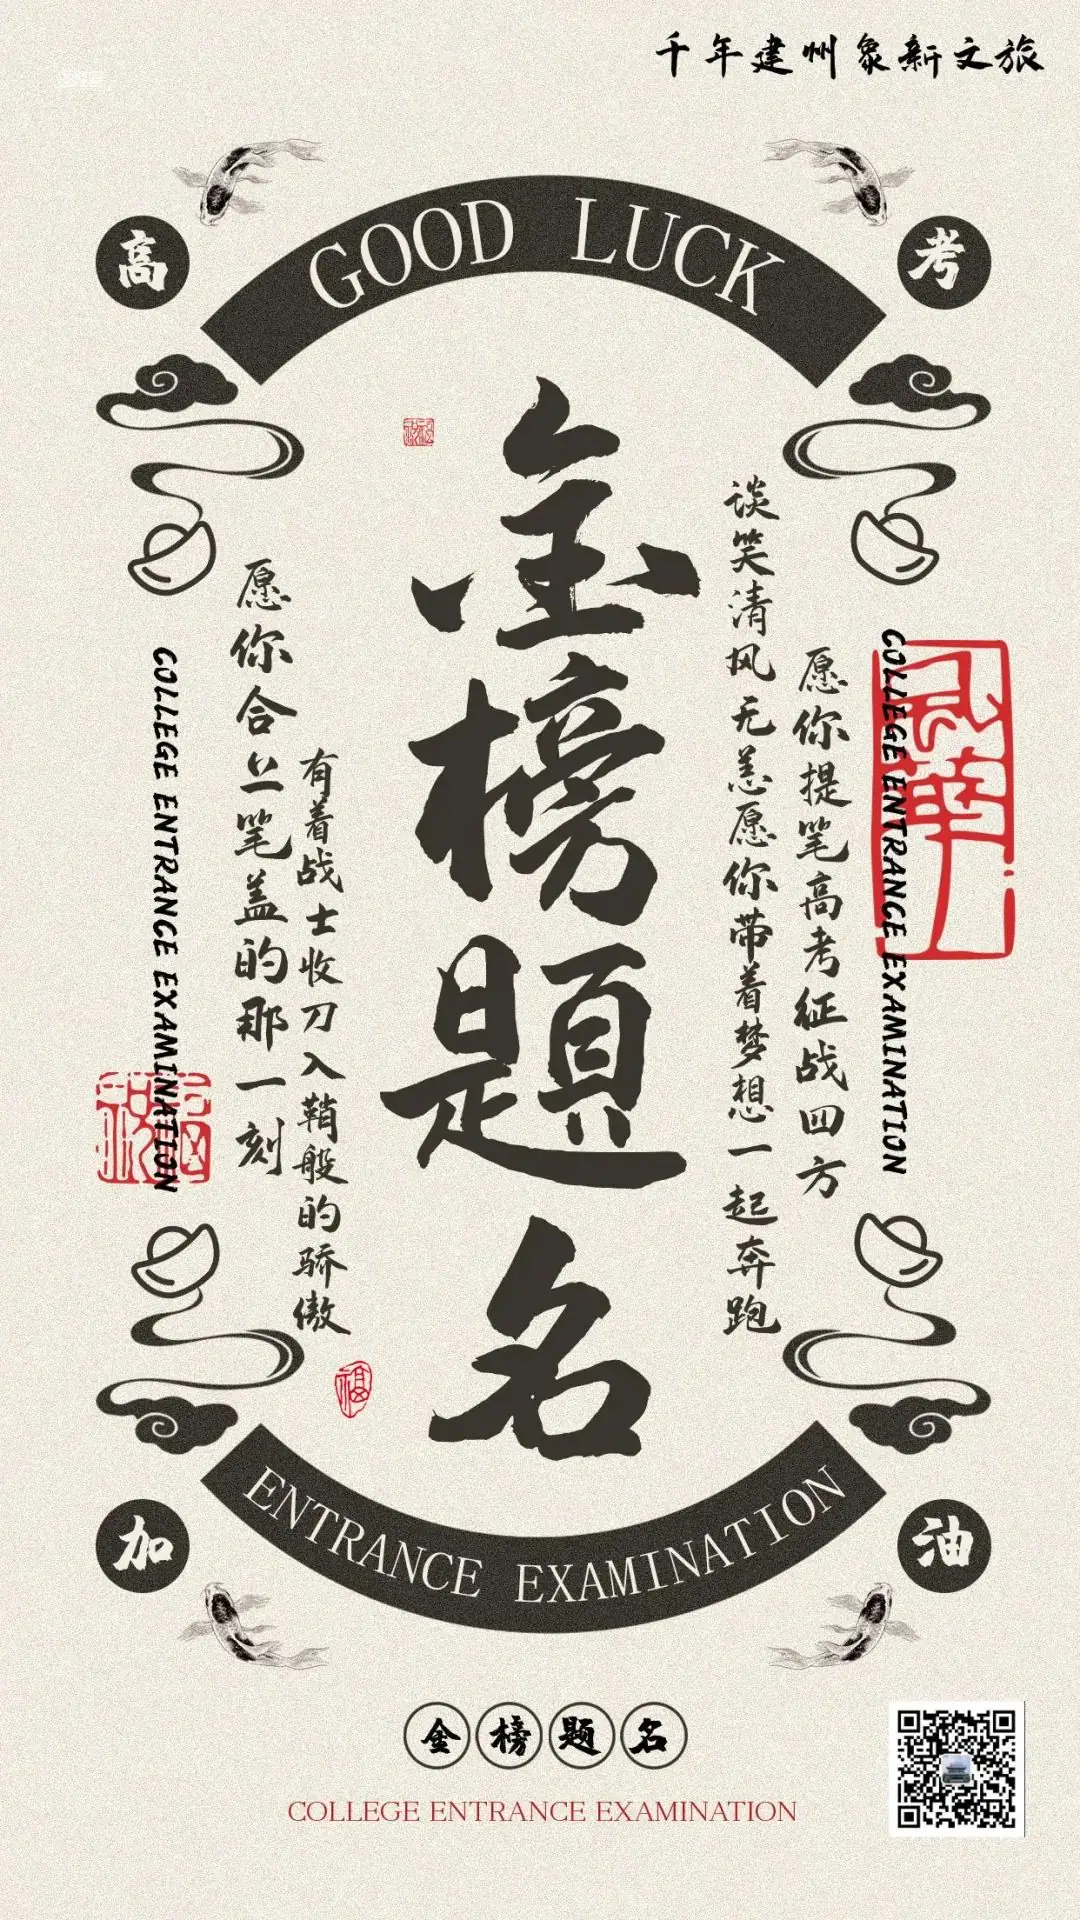 千年建州象新文旅
高
考
GOOD LUCK
金榜題名
愿你提笔高考征战四方
谈笑清风无恙愿你带着梦想一起奔跑
愿你合上笔盖的那一刻
有着战士收刀入鞘般的骄傲
COLLEGE ENTRANCE EXAMINATION
COLLEGE ENTRANCE EXAMINATION
福
ENTRANCE EXAMINATION
加
油
金榜题名
COLLEGE ENTRANCE EXAMINATION